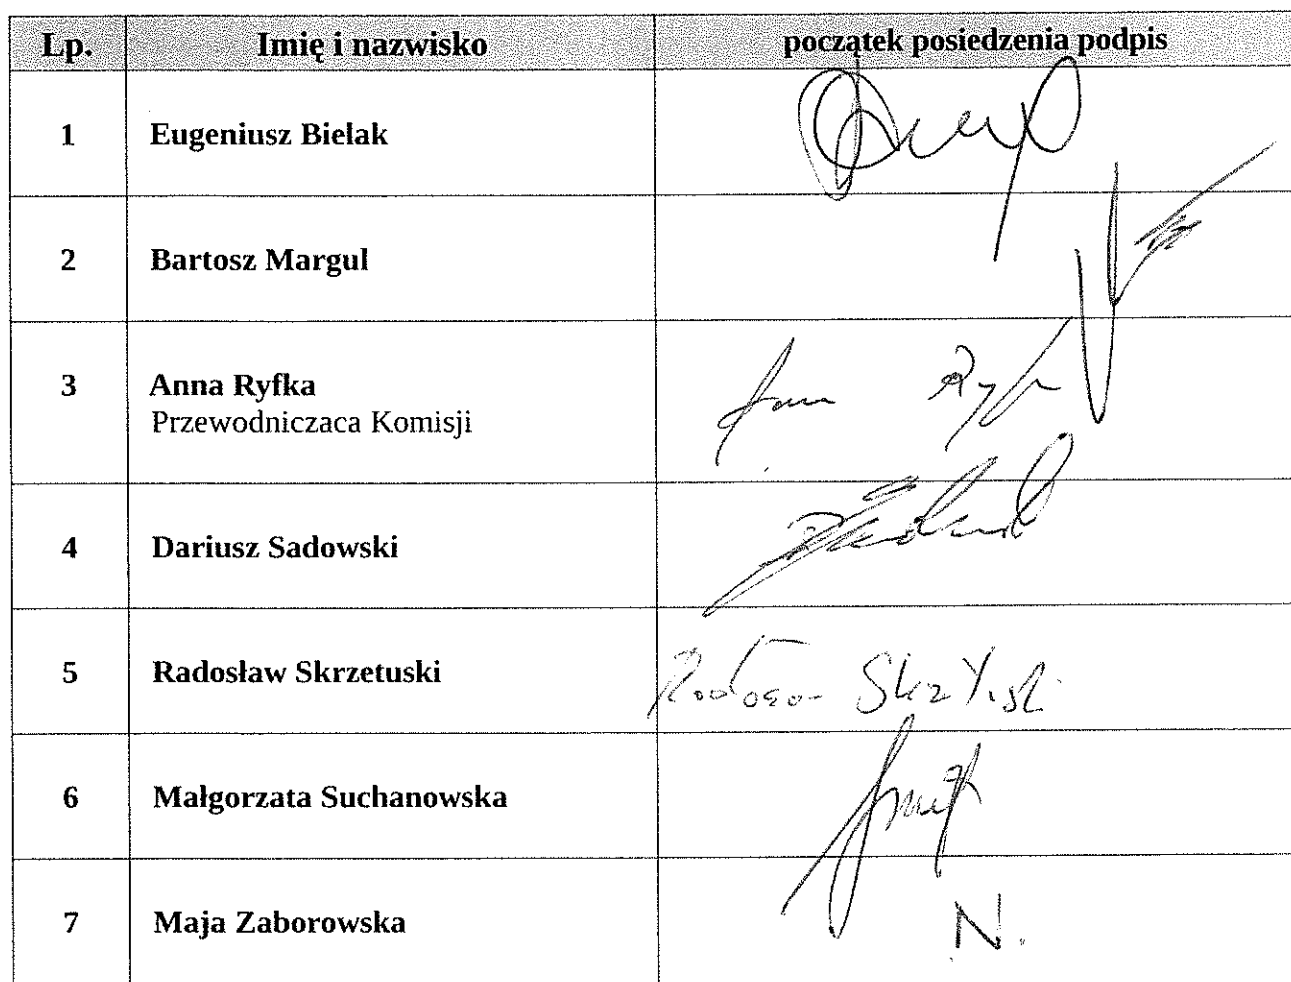 Lp. Imię i nazwisko początek posiedzenia podpis
1 Eugeniusz Bielak
2 Bartosz Margul
3 Anna Ryfka
Przewodniczaca Komisji
4 Dariusz Sadowski
5 Radosław Skrzetuski
6 Małgorzata Suchanowska
7 Maja Zaborowska N.